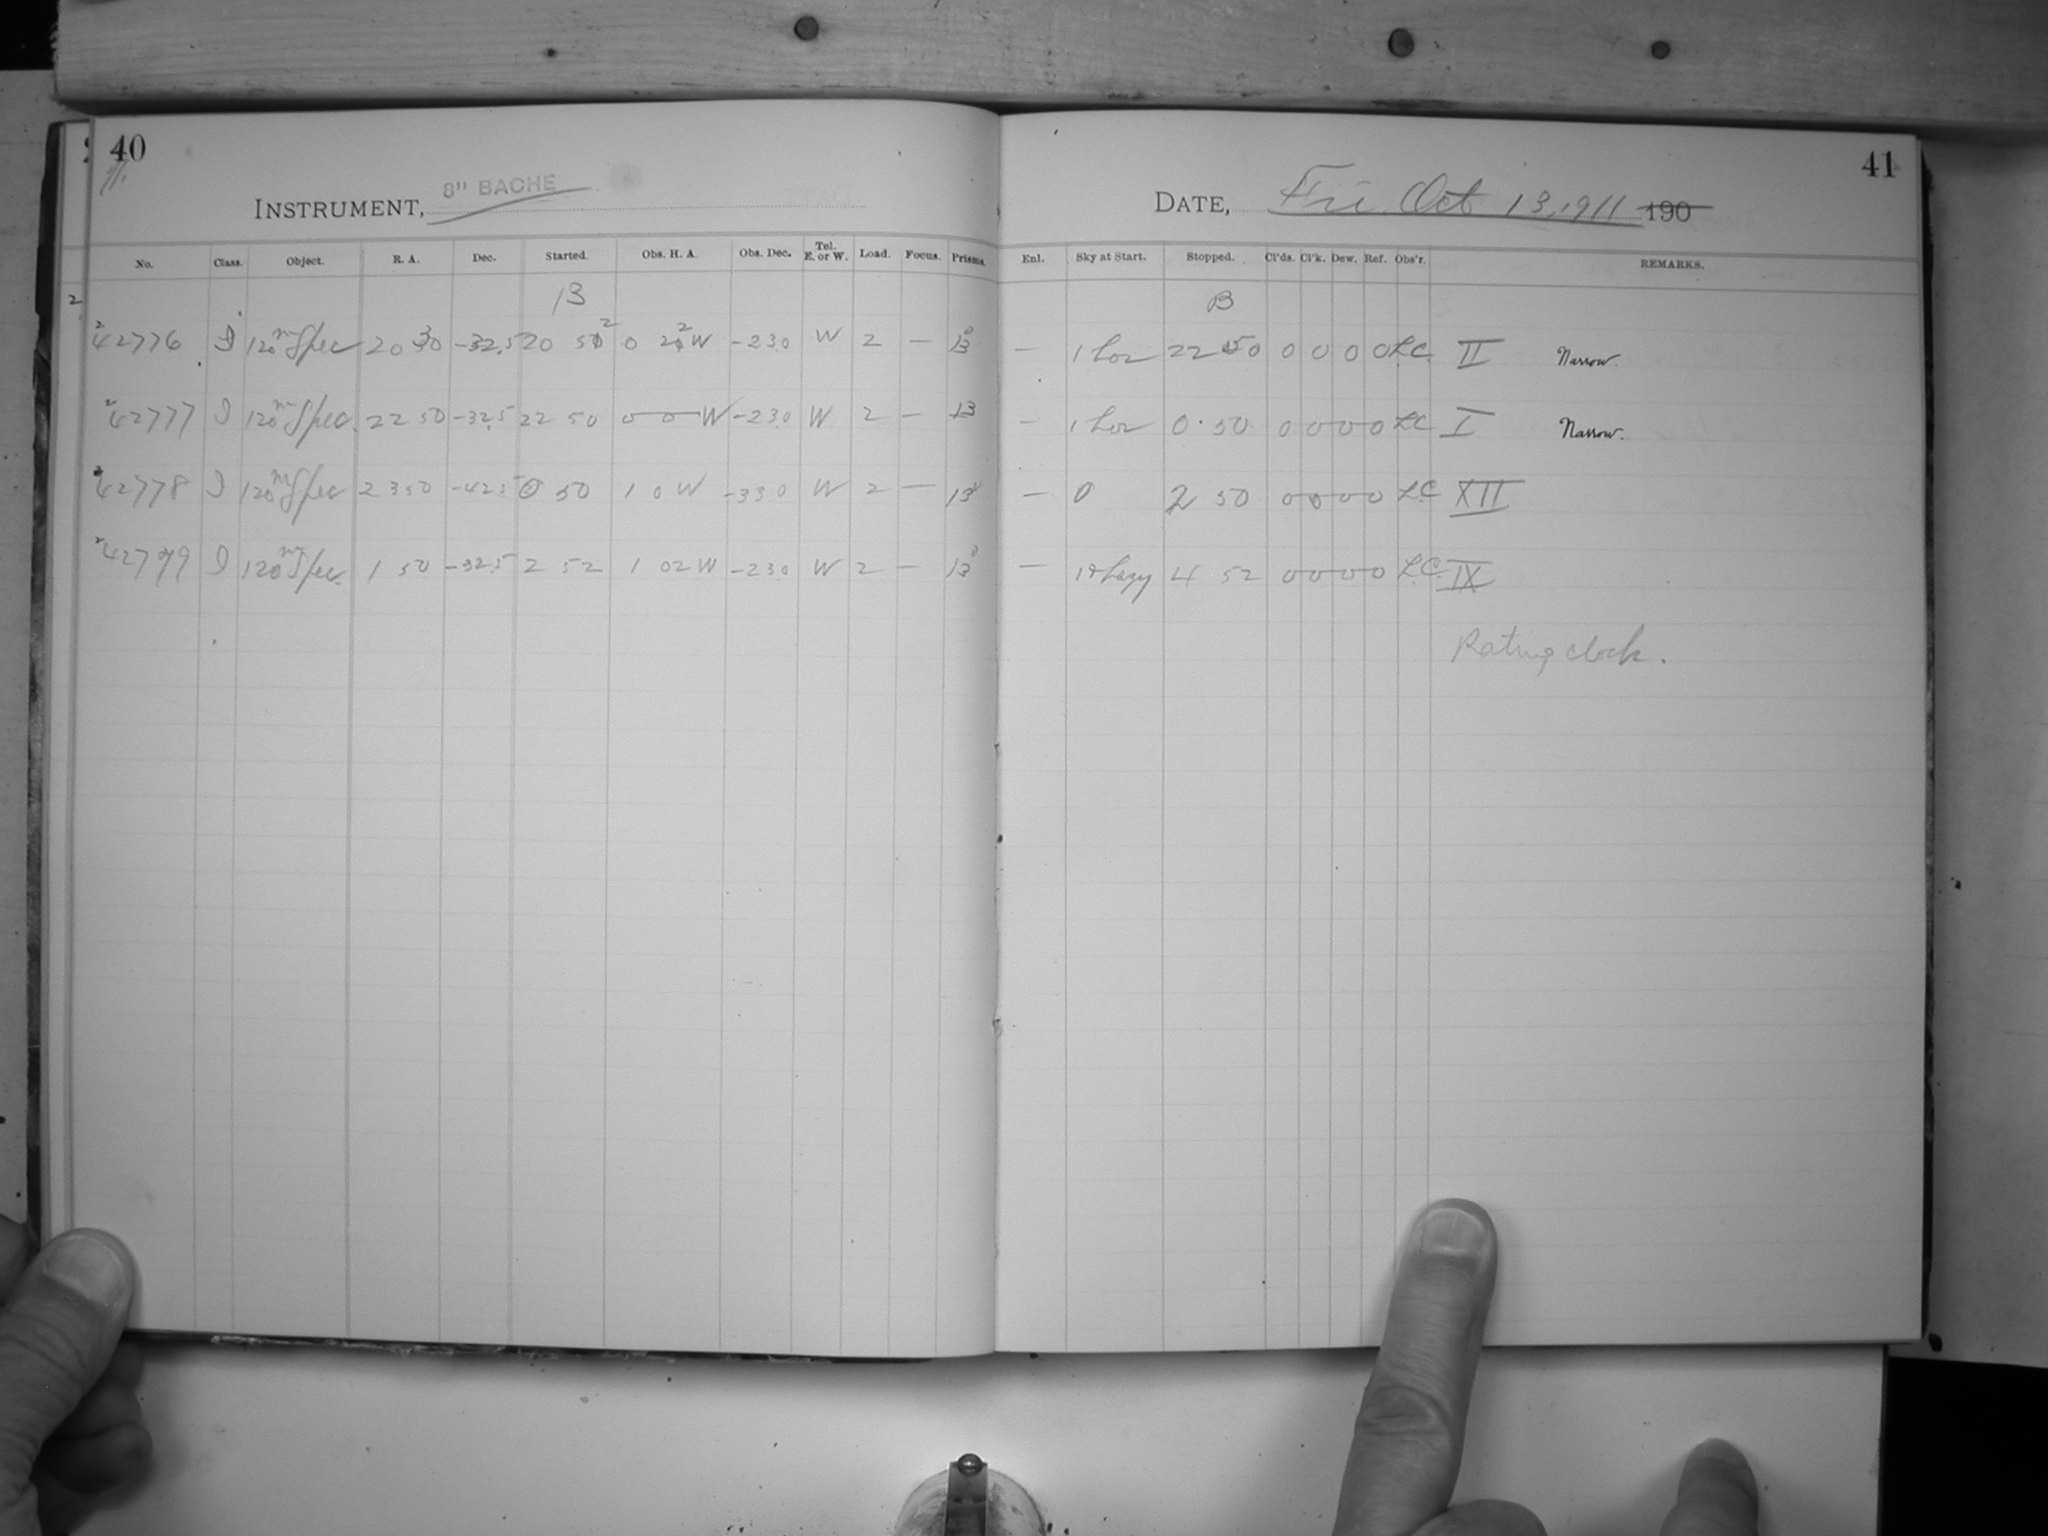 40
INSTRUMENT, 8" BACHE
No. Class. Object. R. A. Dec. Started. Obs. H. A. Obs. Dec. Tel. E. or W. Load. Focus. Prisms.
B
42776 I 120m Spec 20 30 -32.5 20 52 0 22 W -23.0 W 2 — 13
42777 I 120m Spec. 22 50 -32.5 22 50 0 0 W -23.0 W 2 — 13
42778 I 120m Spec 23 50 -42.5 0 50 1 0 W -33.0 W 2 — 13
42779 I 120m Spec. 1 50 -32.5 2 52 1 02 W -23.0 W 2 — 13
41
DATE, Fri. Oct 13, 1911 190
Enl. Sky at Start. Stopped. Cl'ds. Cl'k. Dew. Ref. Obs'r. REMARKS.
B
— 1 hor 22 50 0 0 0 0 L.C. II Narrow.
— 1 hor 0 50 0 0 0 0 L.C. I Narrow.
— 0 2 50 0 0 0 0 L.C. XII
— hazy 4 52 0 0 0 0 L.C. IX
Rating clock.